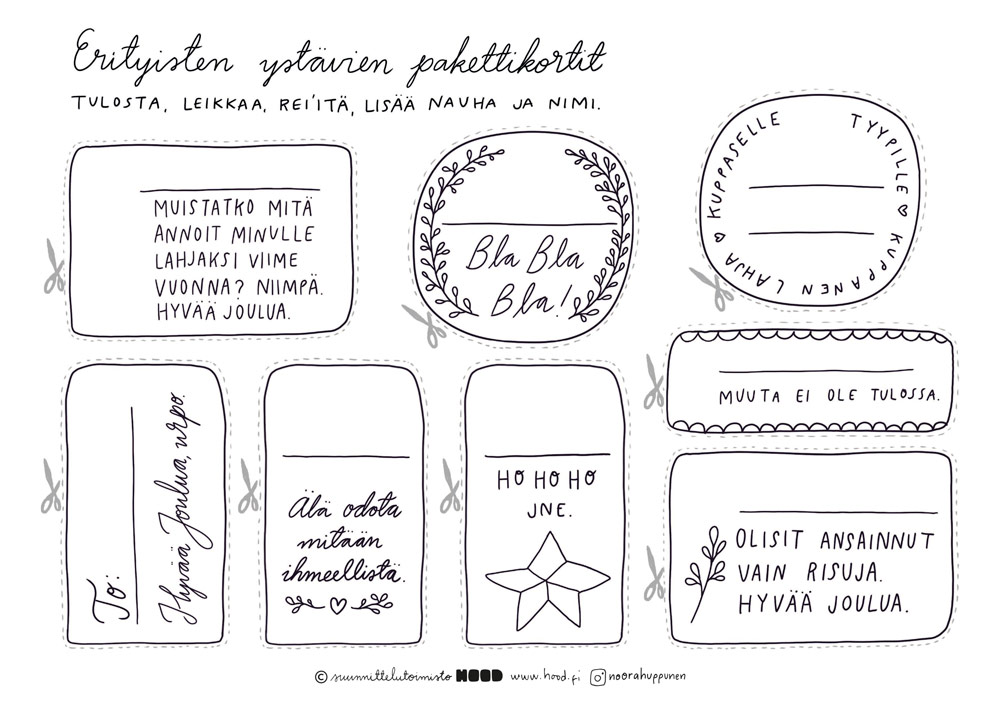 Erityisten ystävien pakettikortit
TULOSTA, LEIKKAA, REI'ITÄ, LISÄÄ NAUHA JA NIMI.
MUISTATKO MITÄ
ANNOIT MINULLE
LAHJAKSI VIIME
VUONNA? NIIMPÄ.
HYVÄÄ JOULUA.
Bla Bla
Bla!
KUPPASELLE TYYPILLE ♡ KUPPANEN LAHJA ♡
MUUTA EI OLE TULOSSA.
To:
Hyvää Joulua, urpo.
Älä odota
mitään
ihmeellistä.
HO HO HO
JNE.
OLISIT ANSAINNUT
VAIN RISUJA.
HYVÄÄ JOULUA.
© suunnittelutoimisto HOOD www.hood.fi noorahuppunen